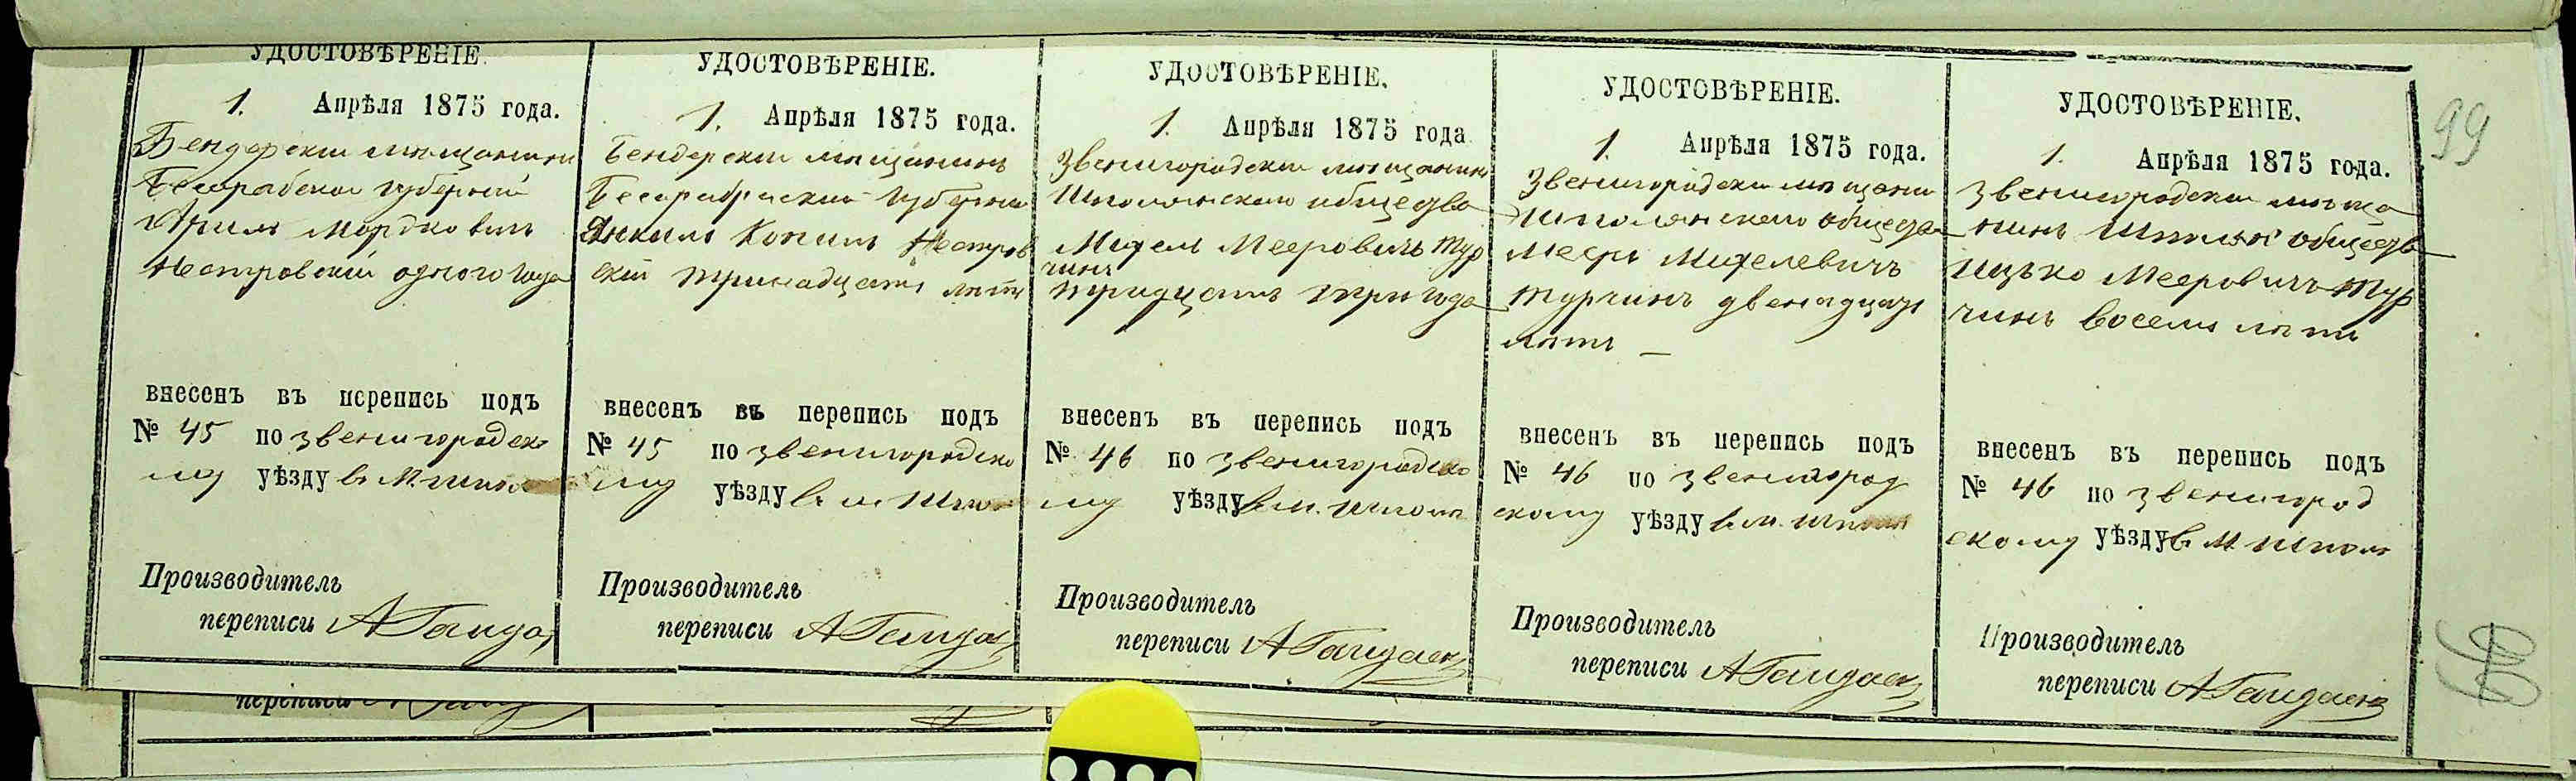 УДОСТОВѢРЕНІЕ.
1. Апрѣля 1875 года.
Бендерскій мѣщанинъ
Бесарабской губерніи
Мордковичъ
Нестровскій одного года
внесенъ въ перепись подъ
№ 45 по Звенигородско
му уѣзду в. м. Шпол
Производитель
переписи А Гайда
УДОСТОВѢРЕНІЕ.
1. Апрѣля 1875 года.
Бендерскій мѣщанинъ
Бесарабской губерніи
Янкель Копилъ Нестров
скій тринадцать лѣтъ
внесенъ въ перепись подъ
№ 45 по Звенигородско
му уѣзду в. м. Шпол
Производитель
переписи А Гайда
УДОСТОВѢРЕНІЕ.
1. Апрѣля 1875 года
Звенигородскій мѣщанинъ
Шполянского общества
Михель Мееровичъ Тур
чинъ
тридцать три года
внесенъ въ перепись подъ
№ 46 по Звенигородско
му уѣзду в. м. Шпола
Производитель
переписи А Гайдаенк
УДОСТОВѢРЕНІЕ.
1. Апрѣля 1875 года.
Звенигородскій мѣщани
Шполянского общества
Мееръ Михелевичъ
Турчинъ двенадцать
лѣтъ —
внесенъ въ перепись подъ
№ 46 по Звенигород
скому уѣзду в. м. Шпола
Производитель
переписи А Гайдаенк
УДОСТОВѢРЕНІЕ.
1. Апрѣля 1875 года.
Звенигородскій мѣща
нинъ Шполян общества
Ицько Мееровичъ Тур
чинъ восемь лѣтъ
внесенъ въ перепись подъ
№ 46 по Звенигород
скому уѣзду в. м. Шпола
Производитель
переписи А Гайдаенк
99
переписи